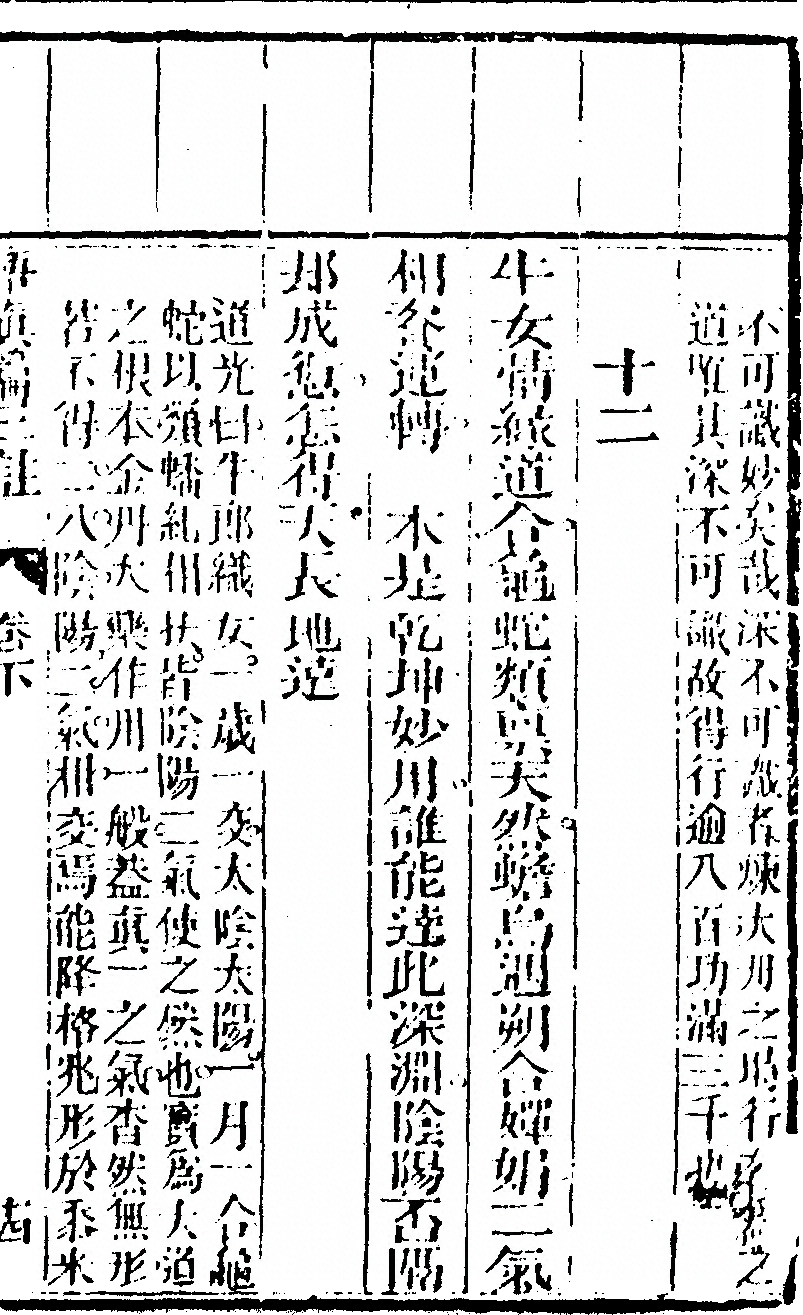 不可識妙矣哉深不可識者煉大丹之時行
道唯其深不可識故得行逾八百功滿三千
十二
牛女情緣道合龜蛇類稟天然蟾烏遇朔合嬋娟二氣
相資運轉 本是乾坤妙用誰能達此深淵陰陽否隔
却成愆怎得天長地遠
道光曰牛郎織女一歲一交太陰太陽一月一合龜
蛇以類蟠虬相扶皆陰陽二氣使之然也實爲大道
之根本金丹大藥作用一般蓋真一之氣杳然無形
若不得二八陰陽二氣相交焉能降格兆形於黍米
悟真篇三註 卷下